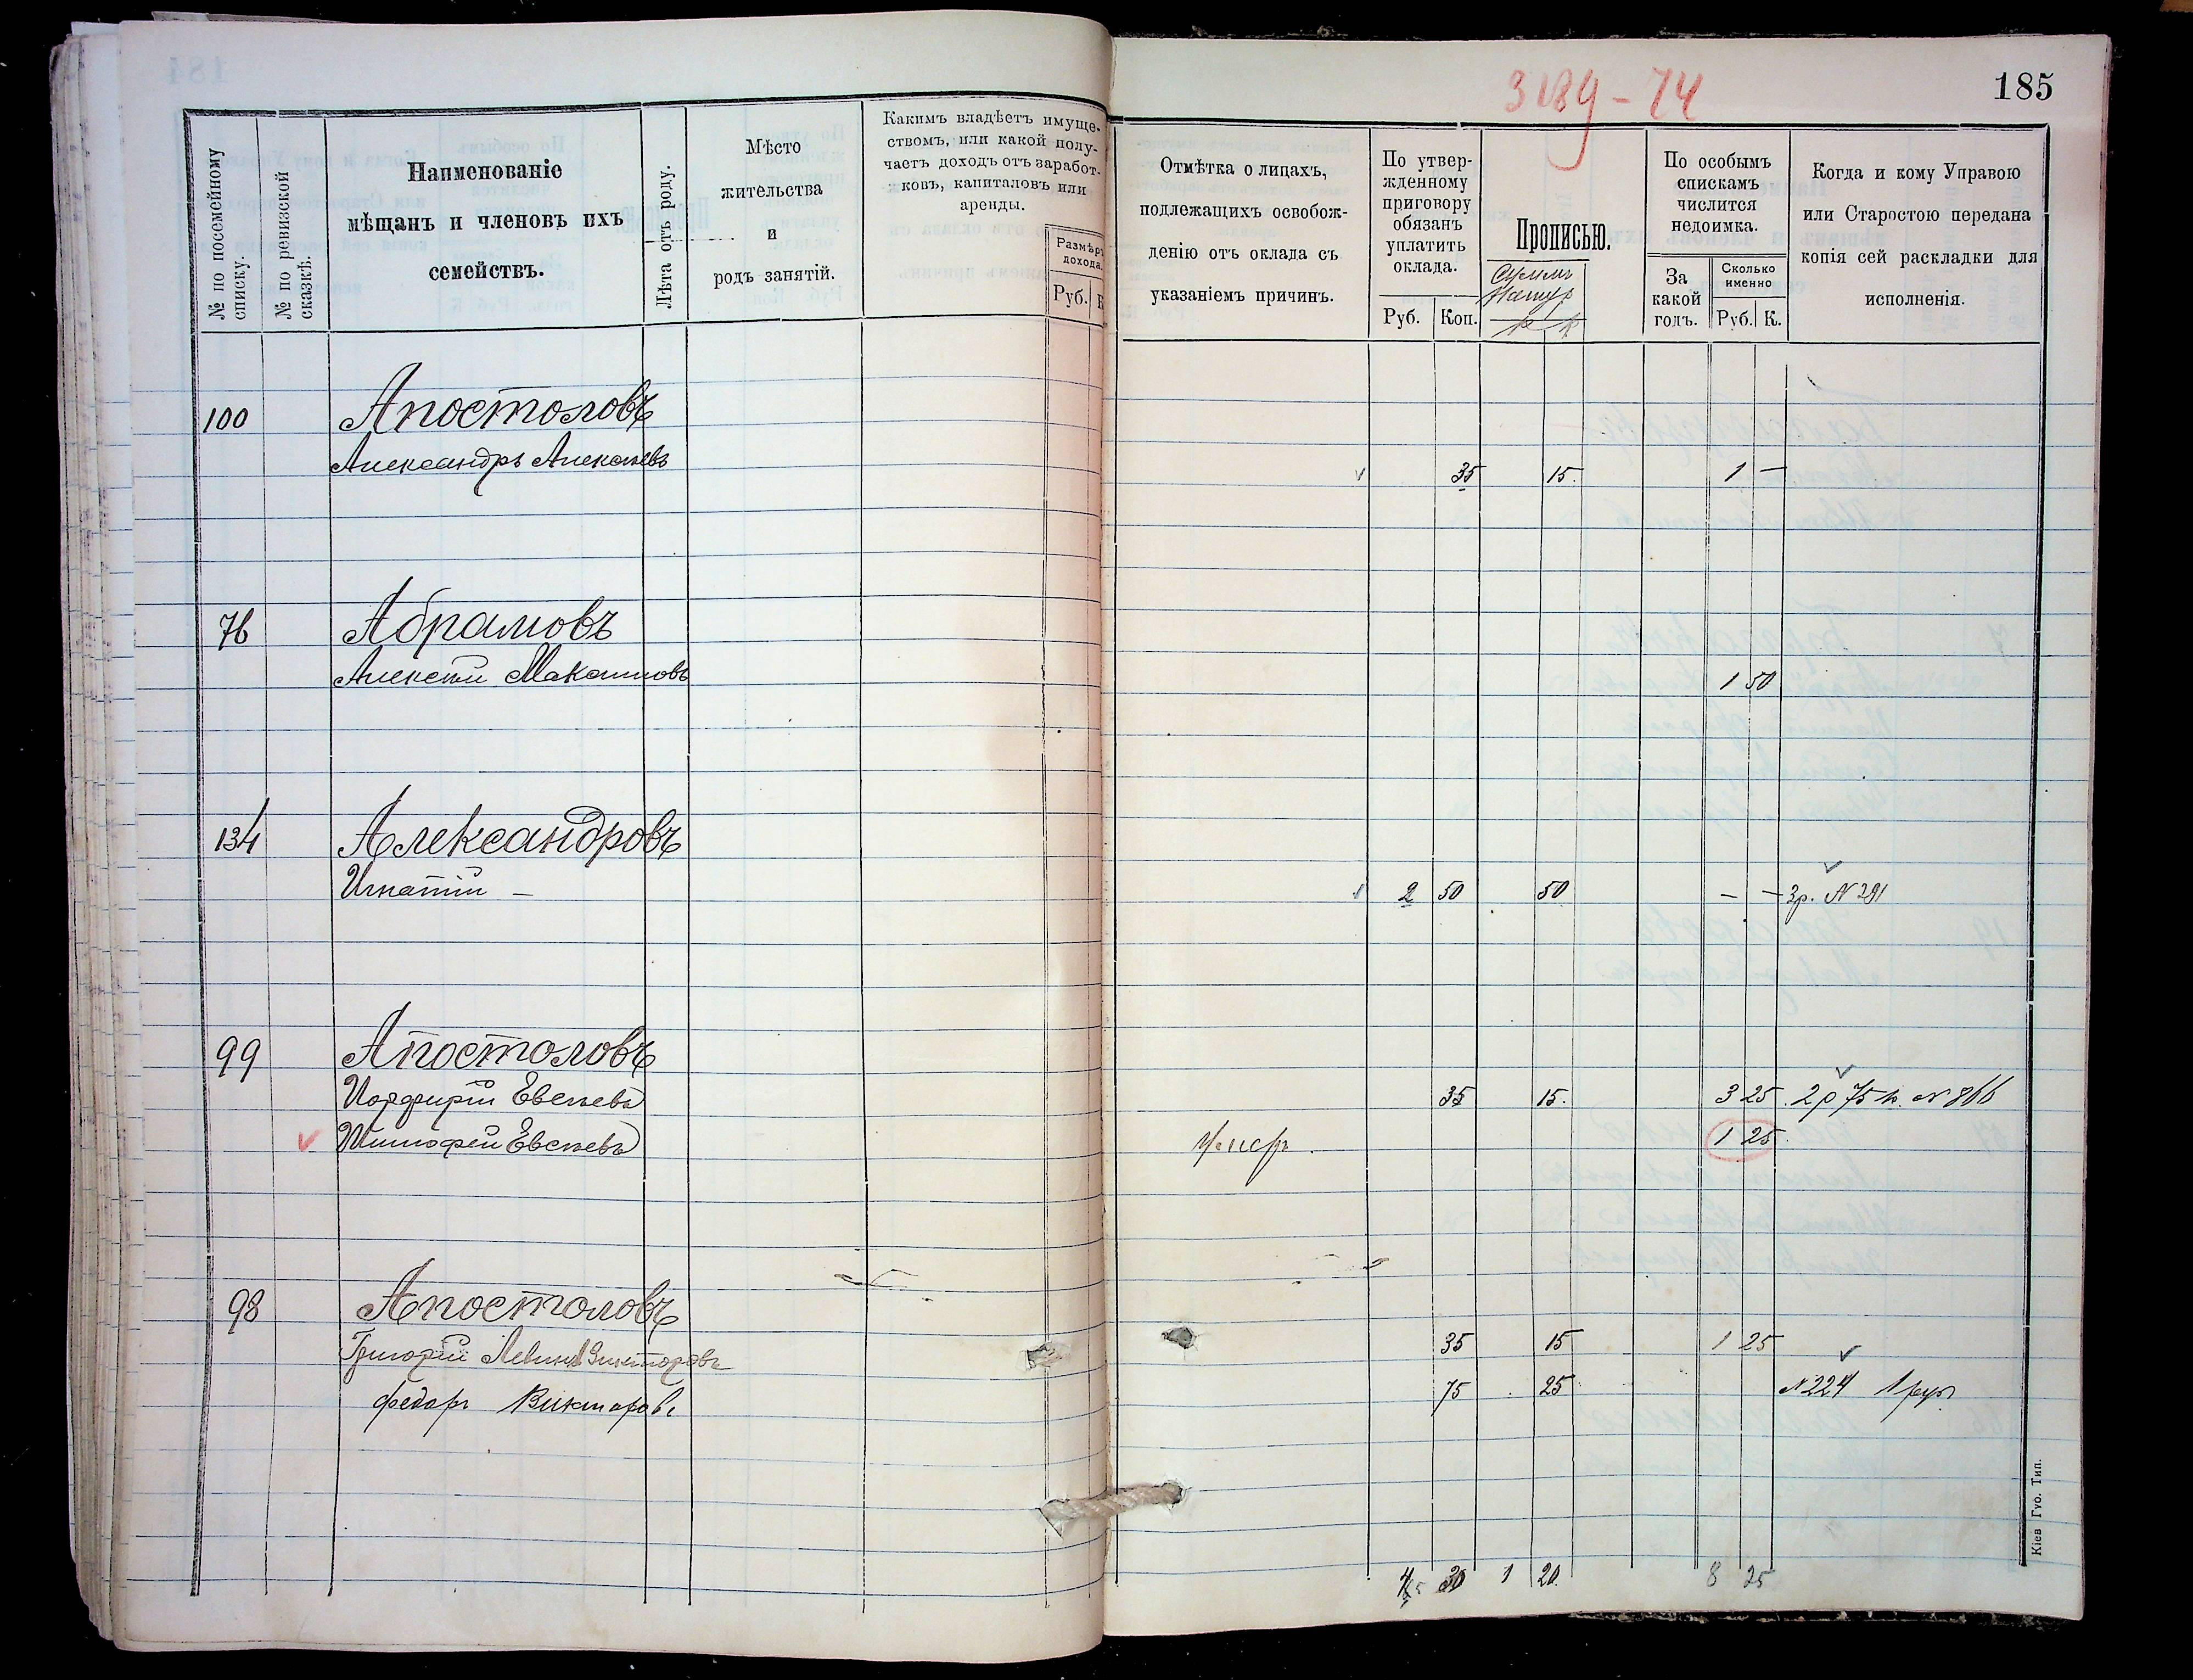 185
№ по посемейному списку.
№ по ревизской сказкѣ.
Наименованіе
мѣщанъ и членовъ ихъ
семействъ.
Лѣта отъ роду.
Мѣсто
жительства
и
родъ занятій.
Какимъ владѣетъ имуще-
ствомъ, или какой полу-
чаетъ доходъ отъ заработ-
ковъ, капиталовъ или
аренды.
Размѣръ
дохода.
Руб.
К
Отмѣтка о лицахъ,
подлежащихъ освобож-
денію отъ оклада съ
указаніемъ причинъ.
По утвер-
жденному
приговору
обязанъ
уплатить
оклада.
Руб. Коп.
Прописью.
По особымъ
спискамъ
числится
недоимка.
За
какой
годъ.
Сколько
именно
Руб. К.
Когда и кому Управою
или Старостою передана
копія сей раскладки для
исполненія.
100 Апостоловъ
Александръ Алексѣевъ 35 15. 1 —
76 Абрамовъ
Алексѣй Максимовъ 1 50
134 Александровъ
Игнатій — 2 50 50 — — 3р. N 291
99 Апостоловъ
Порфирій Евсѣевъ 35 15. 3 25 2 р 75 к. N 866
Тимофей Евсѣевъ 1 25
98 Апостоловъ
Григорій Викторовъ 35 15 1 25
Федоръ Викторовъ 75 25 N 224 1 руб
30 1 20 8 25
Кіев Гуо. Тип.